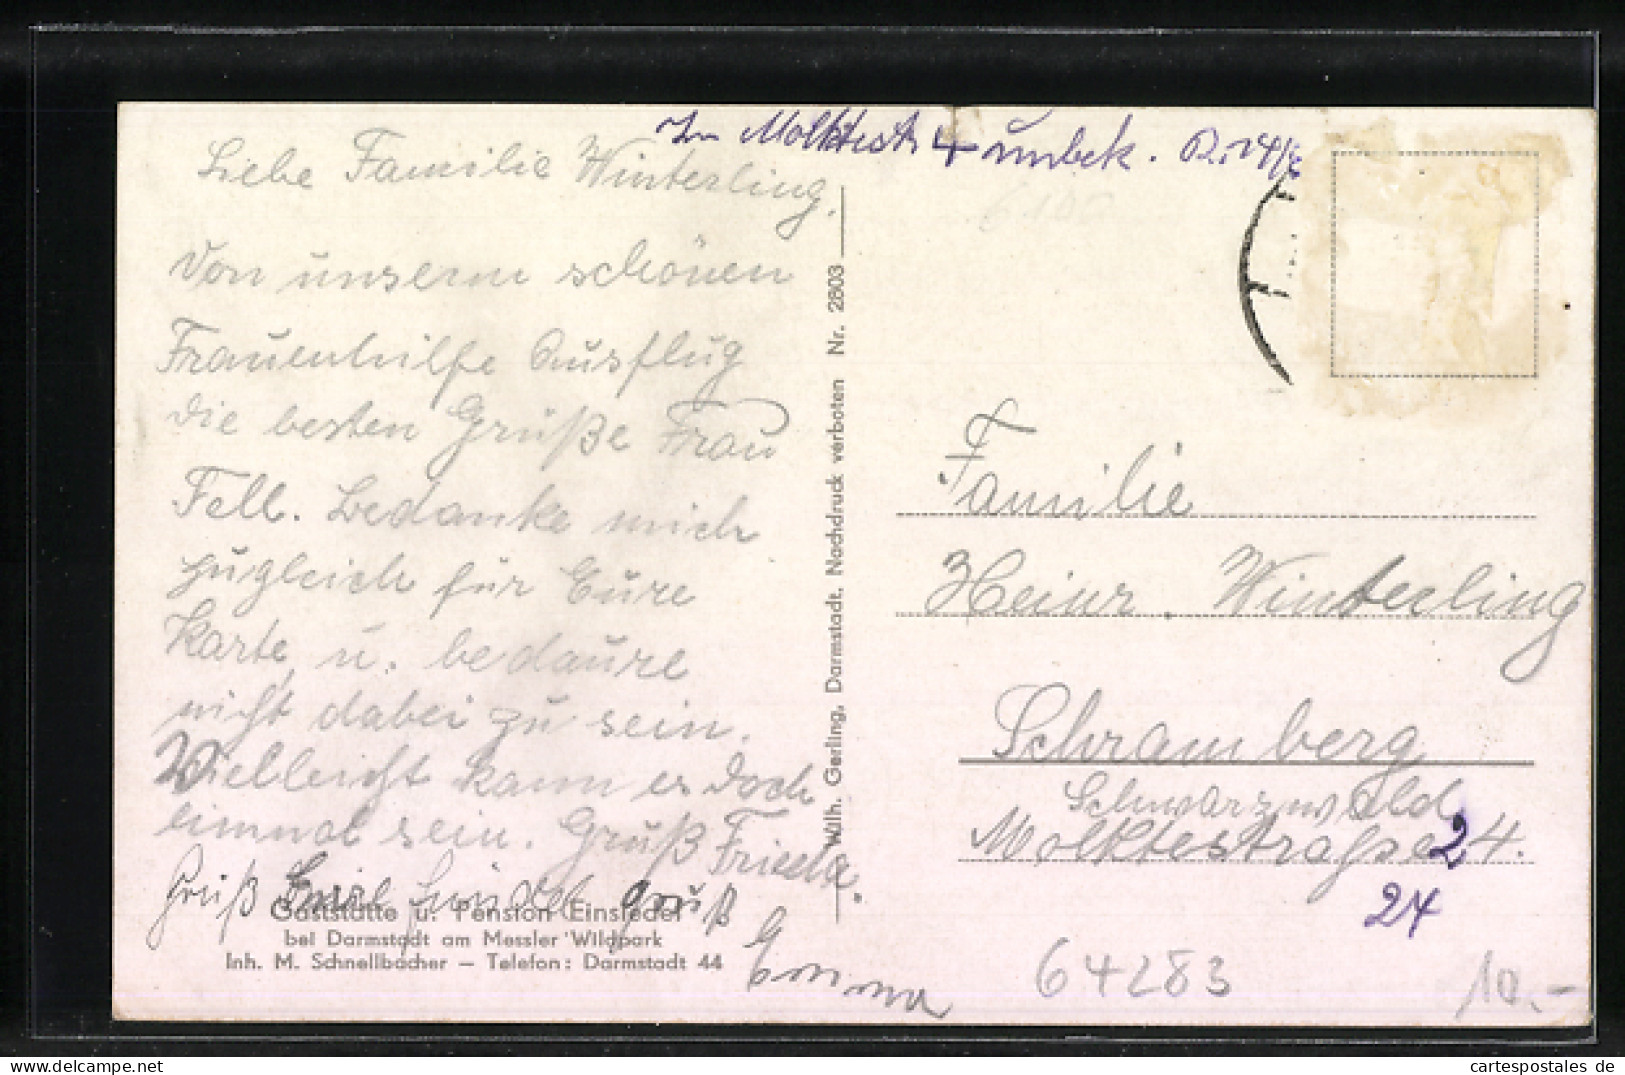 Liebe Familie Winterling.
Von unserm schönen
Frauenhilfe Ausflug
die besten Grüße Frau
Fell. Bedanke mich
zugleich für Eure
Karte u. bedaure
nicht dabei zu sein.
Vielleicht kann es doch
einmal sein. Gruß Frieda.
Gruß Gruß
Emma
Gaststätte u. Pension Einsiedel
bei Darmstadt am Messler Wildpark
Inh. M. Schnellbächer – Telefon: Darmstadt 44
Wilh. Gerling, Darmstadt, Nachdruck verboten Nr. 2803
In Molktestr 4 unbek.
Familie
Heinr. Winterling
Schramberg
Schwarzwald
Molktestraße 24.
24
64283
10.-
cartespostales de